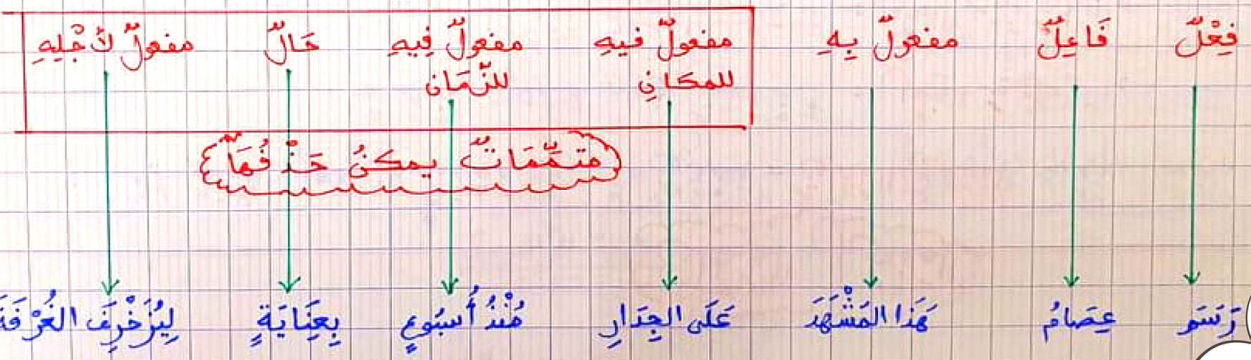 فِعْلٌ فَاعِلٌ مفعولٌ بِهِ مفعولٌ فيهِ مفعولٌ فِيهِ حَالٌ مفعولٌ لأَجْلِهِ
للمكانِ للزّمَانِ
متمّمَاتٌ يمكنُ حَذْفُهَا
رَسَمَ عِصَامُ هَذَا المَشْهَدَ عَلَى الجِدَارِ مُنْذُ أُسْبُوعٍ بِعِنَايَةٍ لِيُزَخْرِفَ الغُرْفَةَ